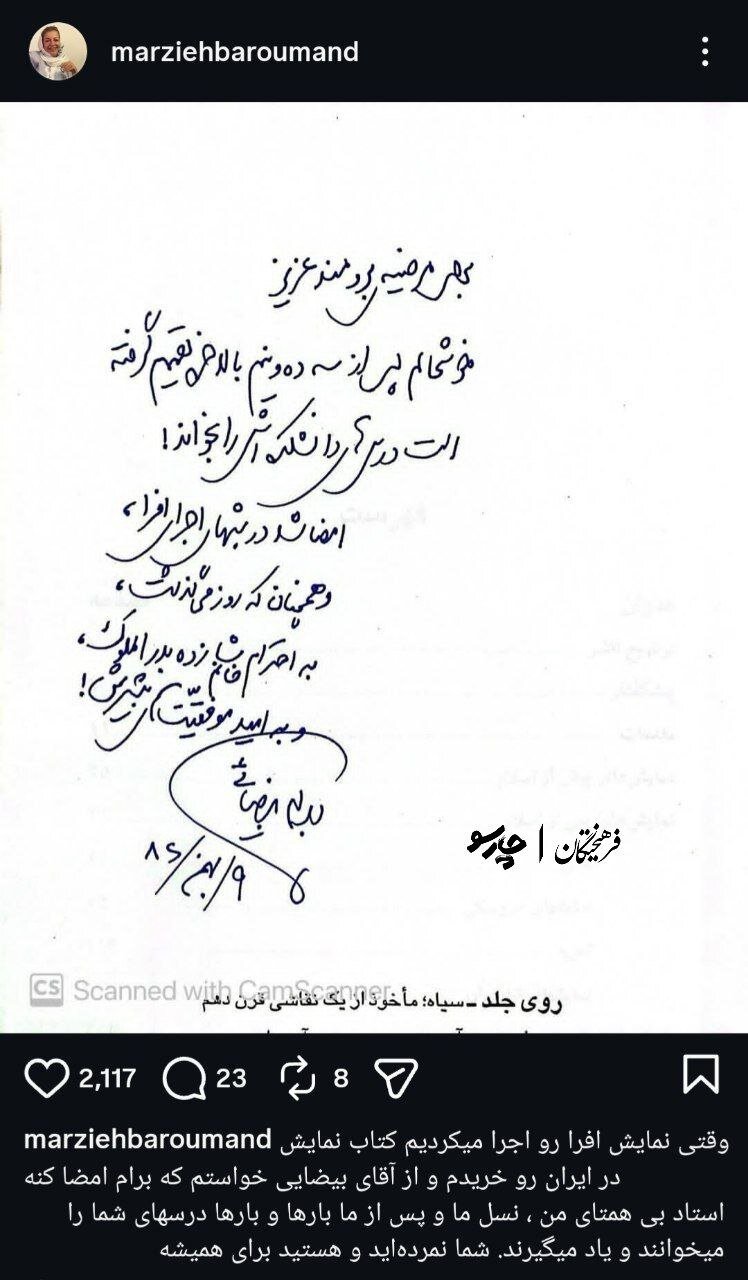 marziehbaroumand
برای مرضیه برومند عزیز
خوشحالم پس از سه دهه و نیم بالاخره تصمیم گرفته
است درس‌های دانشکده‌اش را بخواند!
امضا شد در شبهای اجرای افرا،
و همچنان که روز می‌گذشت،
به احترام خانم شازده بدرالملوک،
و به امید موفقیّت‌های بیشترش!
بهرام بیضائی
۹/بهمن/۸۶
فرهیختگان | چارسو
CS Scanned with CamScanner
روی جلد ـ سیاه؛ مأخوذ از یک نقاشی قرن دهم
2,117 23 8
marziehbaroumand وقتی نمایش افرا رو اجرا میکردیم کتاب نمایش
در ایران رو خریدم و از آقای بیضایی خواستم که برام امضا کنه
استاد بی همتای من ، نسل ما و پس از ما بارها و بارها درسهای شما را
میخوانند و یاد میگیرند. شما نمرده‌اید و هستید برای همیشه